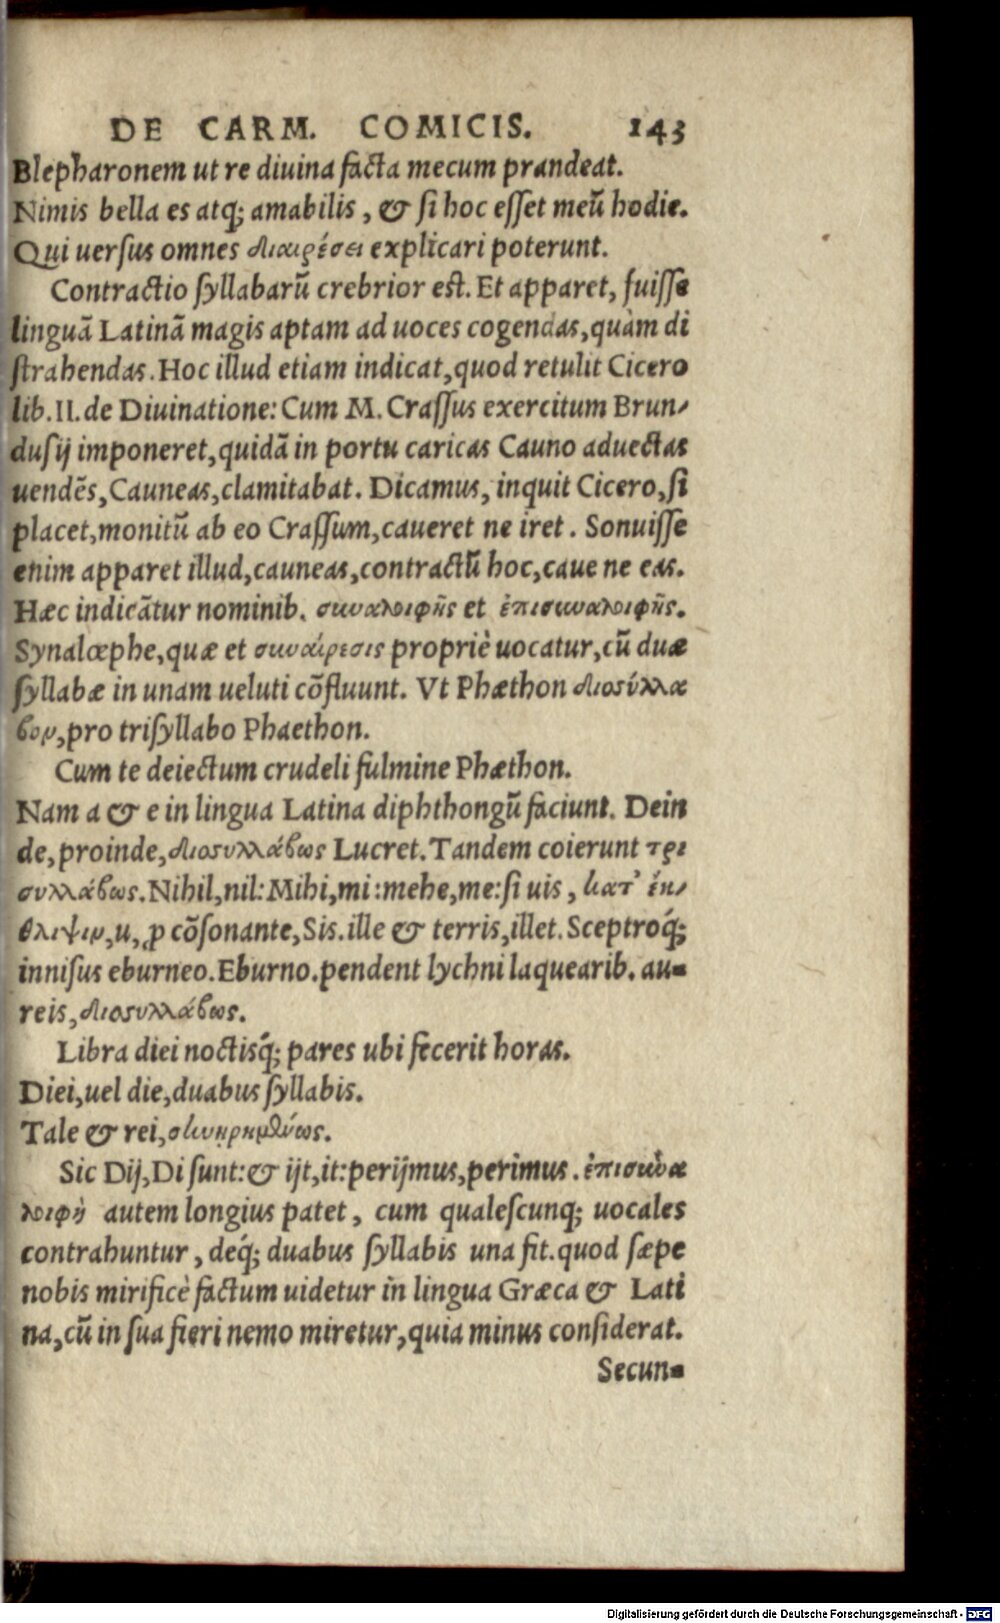 DE CARM. COMICIS. 143
Blepharonem ut re diuina facta mecum prandeat.
Nimis bella es atq; amabilis, & si hoc esset meũ hodie.
Qui uersus omnes διαιρέσει explicari poterunt.
Contractio syllabarũ crebrior est. Et apparet, fuisse
linguã Latinã magis aptam ad uoces cogendas, quàm di
strahendas. Hoc illud etiam indicat, quod retulit Cicero
lib. II. de Diuinatione: Cum M. Crassus exercitum Brun-
dusij imponeret, quidã in portu caricas Cauno aduectas
uendẽs, Cauneas, clamitabat. Dicamus, inquit Cicero, si
placet, monitũ ab eo Crassum, caueret ne iret. Sonuisse
enim apparet illud, cauneas, contractũ hoc, caue ne eas.
Hæc indicãtur nominib. συναλοιφῆς et ἐπισυναλοιφῆς.
Synalœphe, quæ et συναίρεσις propriè uocatur, cũ duæ
syllabæ in unam ueluti cõfluunt. Vt Phæthon δισσύλλα
βον, pro trisyllabo Phaethon.
Cum te deiectum crudeli fulmine Phæthon.
Nam a & e in lingua Latina diphthongũ faciunt. Dein
de, proinde, δισσυλλάβως Lucret. Tandem coierunt τρι
συλλάβως. Nihil, nil: Mihi, mi: mehe, me: si uis, κατ' ἔκ-
θλιψιν, u, ꝓ cõsonante, Sis. ille & terris, illet. Sceptroq́;
innisus eburneo. Eburno. pendent lychni laquearib. au-
reis, δισσυλλάβως.
Libra diei noctisq́; pares ubi fecerit horas.
Diei, uel die, duabus syllabis.
Tale & rei, συνῃρημένως.
Sic Dij, Di sunt: & ijt, it: perijmus, perimus. ἐπισυνα
λοιφὴ autem longius patet, cum qualescunq; uocales
contrahuntur, deq́; duabus syllabis una fit. quod sæpe
nobis mirificè factum uidetur in lingua Græca & Lati
na, cũ in sua fieri nemo miretur, quia minus considerat.
Secun-
Digitalisierung gefördert durch die Deutsche Forschungsgemeinschaft - DFG